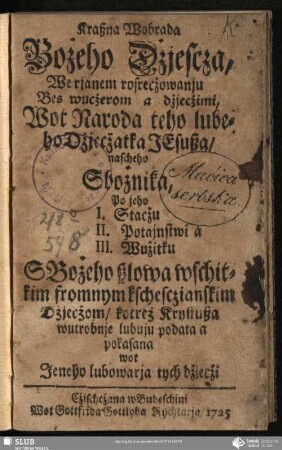 Kraßna Wobrada
Bożeho Dżjescza,
We rjanem rosrecżowanju
Bes wucżerom a dżjecżimi,
Wot Naroda teho lube-
ho Dżjecżatka JEsußa/
nascheho
Sbożnika,
Po jeho
I. Stacżu
II. Potajnstwi a
III. Wużitku
S Bożeho ßlowa wschit-
kim fromnym kschesczianskim
Dżjecżom/ kotreż Krystußa
wutrobnje lubuju podata a
pokasana
wot
Jeneho lubowarja tych dżjecżi
Cżischcżana w Budeschini
Wot Gottfrida Gottloba Rychtarja/ 1725
Macica
serbska.
SLUB